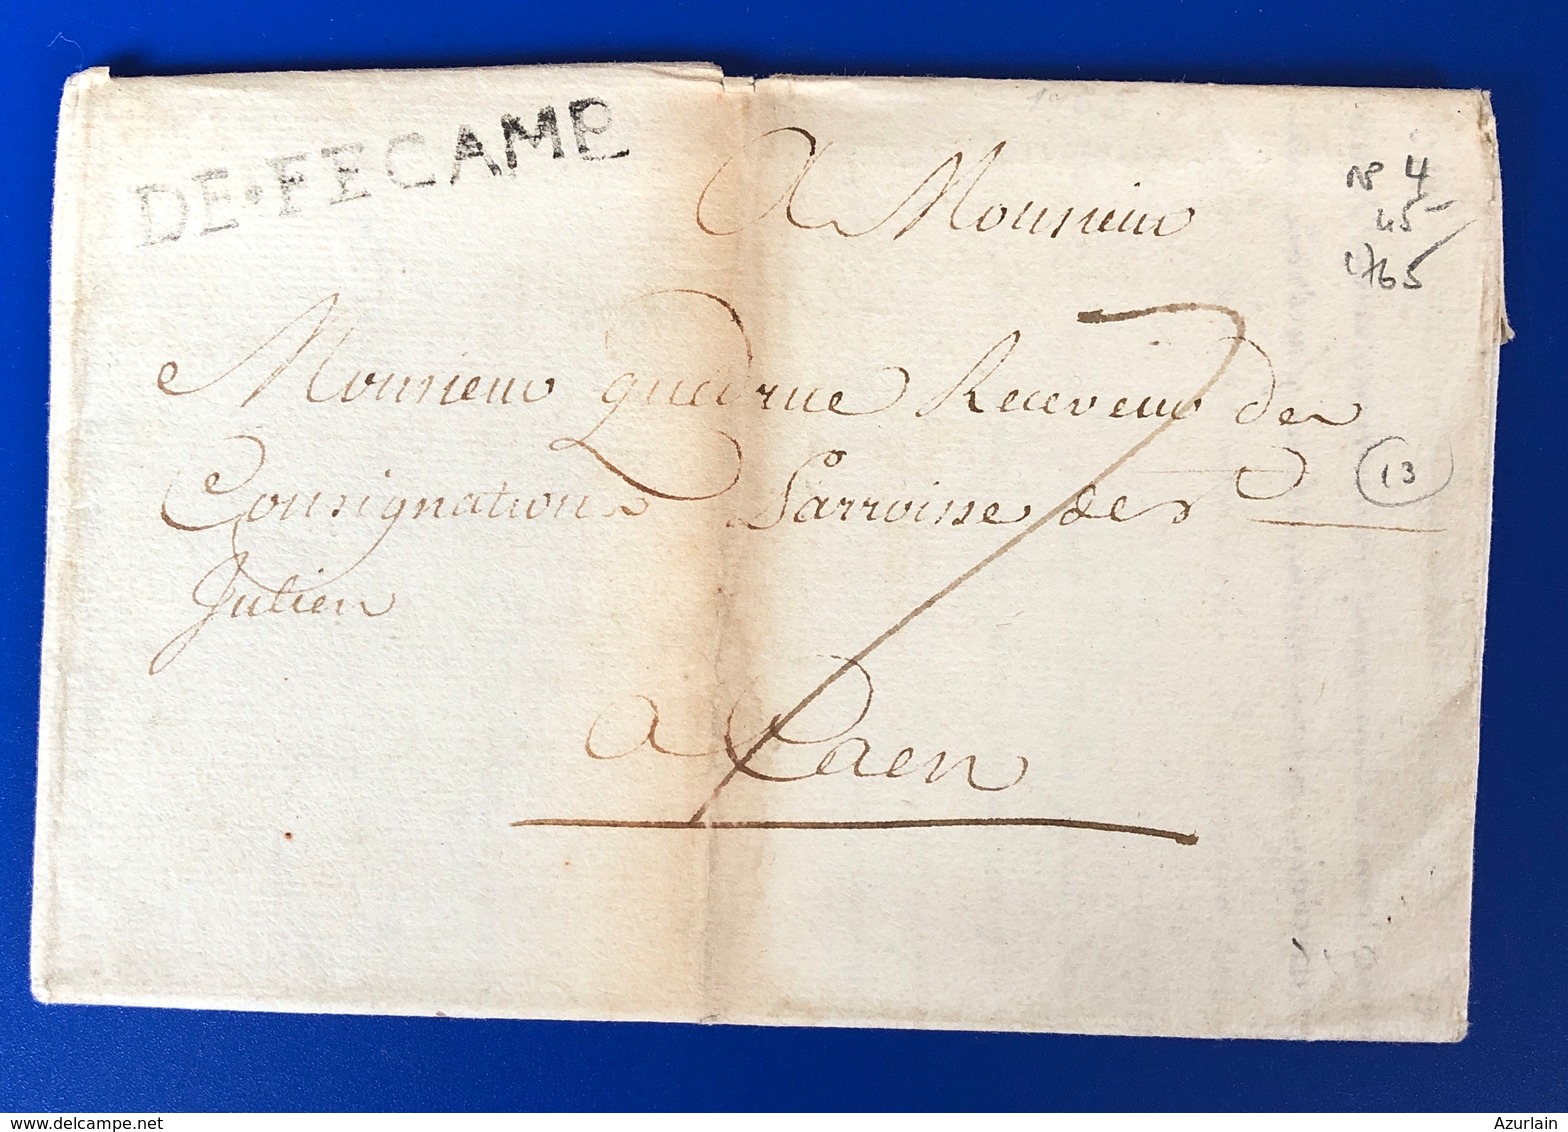 DE·FECAMP
A Monsieur
N° 4
45-
1765
Monsieur quedrue Receveur des
Consignations Parroisse de St
13
Julien
a Caen
www.delcampe.net
Azurlain